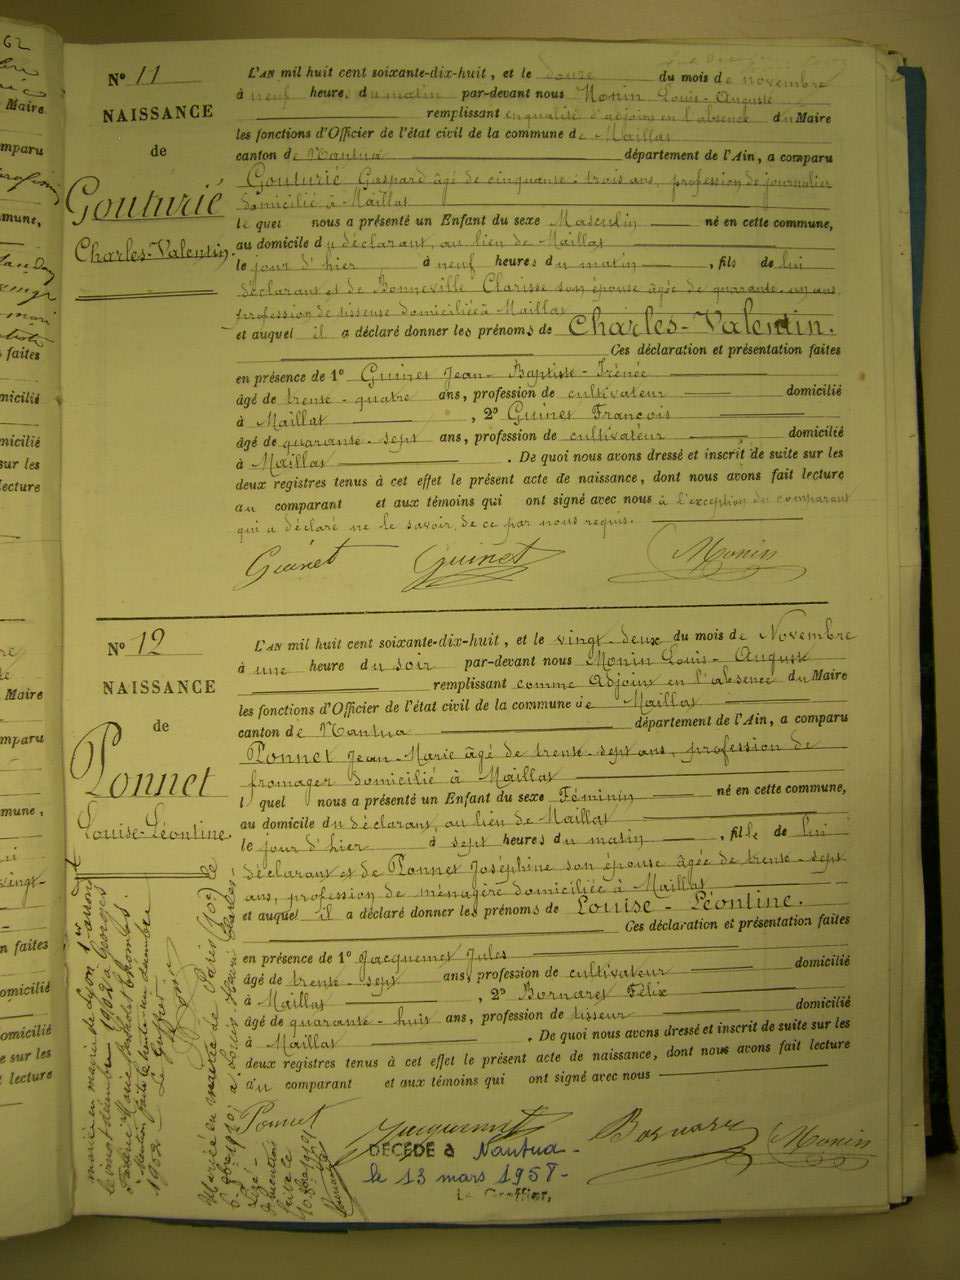 N° 11
NAISSANCE
de
Gouturié
Charles-Valentin.
L'AN mil huit cent soixante-dix-huit, et le douze du mois de novembre
à neuf heure, du matin par-devant nous Monin Louis-Auguste
remplissant en qualité d'adjoint en l'absence du Maire
les fonctions d'Officier de l'état civil de la commune de Maillat
canton de Nantua département de l'Ain, a comparu
Gouturié Gaspard âgé de cinquante-trois ans, profession de journalier
domicilié à Maillat
le quel nous a présenté un Enfant du sexe Masculin né en cette commune,
au domicile du déclarant, au lieu de Maillat
le jour d'hier à neuf heures du matin, fils de lui
déclarant et de Bonneville Clarisse son épouse âgée de quarante-un ans
profession de tisseuse domiciliée à Maillat
et auquel il a déclaré donner les prénoms de Charles-Valentin.
Ces déclaration et présentation faites
en présence de 1° Guinet Jean-Baptiste-Irénée
âgé de trente-quatre ans, profession de cultivateur domicilié
à Maillat, 2° Guinet François
âgé de quarante-sept ans, profession de cultivateur domicilié
à Maillat. De quoi nous avons dressé et inscrit de suite sur les
deux registres tenus à cet effet le présent acte de naissance, dont nous avons fait lecture
au comparant et aux témoins qui ont signé avec nous à l'exception du comparant
qui a déclaré ne le savoir, de ce par nous requis.
Guinet Guinet Monin
N° 12
NAISSANCE
de
Ponnet
Louise-Léontine.
L'AN mil huit cent soixante-dix-huit, et le vingt-deux du mois de Novembre
à une heure du soir par-devant nous Monin Louis-Auguste
remplissant comme Adjoint en l'absence du Maire
les fonctions d'Officier de l'état civil de la commune de Maillat
canton de Nantua département de l'Ain, a comparu
Ponnet Jean-Marie âgé de trente-sept ans, profession de
fromager domicilié à Maillat
l quel nous a présenté un Enfant du sexe Féminin né en cette commune,
au domicile du déclarant, au lieu de Maillat
le jour d'hier à sept heures du matin, fille de lui
déclarant et de Ponnet Joséphine son épouse âgée de trente-sept
ans, profession de ménagère domiciliée à Maillat
et auquel il a déclaré donner les prénoms de Louise-Léontine.
Ces déclaration et présentation faites
en présence de 1° Jacquemet Jules
âgé de trente-sept ans, profession de cultivateur domicilié
à Maillat, 2° Bornaret Félix
âgé de quarante-huit ans, profession de tisseur domicilié
à Maillat. De quoi nous avons dressé et inscrit de suite sur les
deux registres tenus à cet effet le présent acte de naissance, dont nous avons fait lecture
au comparant et aux témoins qui ont signé avec nous
Ponnet Jacquemet Bornaret Monin
DÉCÉDÉ à Nantua
le 13 mars 1958
Le Greffier,
mariée en mairie de Lyon 1er arrondt
le vingt décembre 1902 à Georges
1902 Le Greffier
Mariée en mairie de Paris (10e) le
à Louis Henri Charles